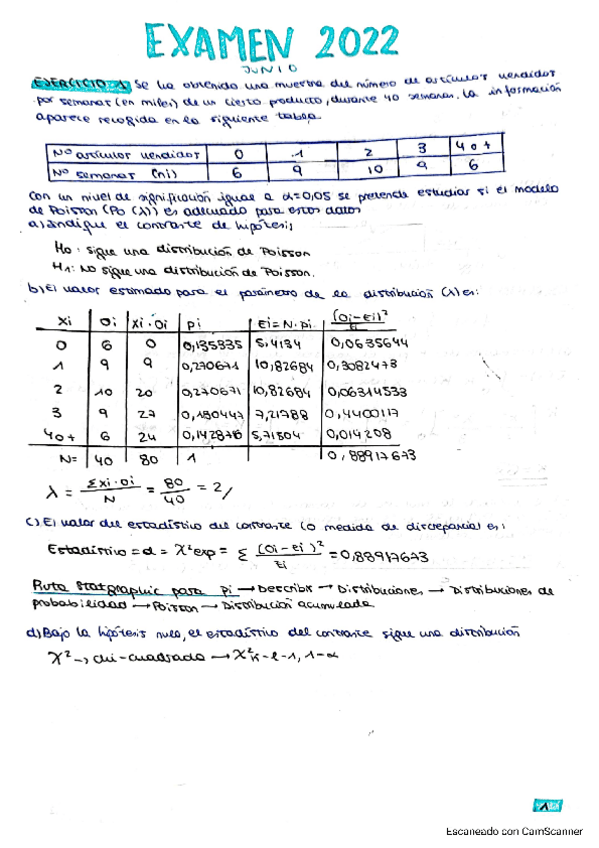 EXAMEN 2022
JUNIO
EJERCICIO 1 Se ha obtenido una muestra del número de artículos vendidos
por semanas (en miles) de un cierto producto, durante 40 semanas. La información
aparece recogida en la siguiente tabla.
Nº artículos vendidos 0 1 2 3 4 o +
Nº semanas (ni) 6 9 10 9 6
Con un nivel de significación igual a α=0,05 se pretende estudiar si el modelo
de Poisson (Po (λ)) es adecuado para estos datos
a) Indique el contraste de hipótesis
H0: sigue una distribución de Poisson
H1: No sigue una distribución de Poisson.
b) El valor estimado para el parámetro de la distribución (λ) es:
xi Oi xi·oi pi Ei=N·pi (Oi-Ei)²/Ei
0 6 0 0,135335 5,4134 0,0635644
1 9 9 0,270671 10,82684 0,3082473
2 10 20 0,270671 10,82684 0,06314533
3 9 27 0,180447 7,21788 0,4400117
4 o + 6 24 0,142876 5,71504 0,014208
N= 40 80 1 0,88917673
λ = Σxi·oi/N = 80/40 = 2/
c) El valor del estadístico del contraste (o medida de discrepancia) es:
Estadístico = d = X²exp = Σ (Oi-ei)²/Ei = 0,88917673
Ruta Statgraphic para pi → Describir → Distribuciones → Distribuciones de
probabilidad → Poisson → Distribución acumulada
d) Bajo la hipótesis nula, el estadístico del contraste sigue una distribución
X² → chi-cuadrado → X²k-l-1, 1-α
1
Escaneado con CamScanner